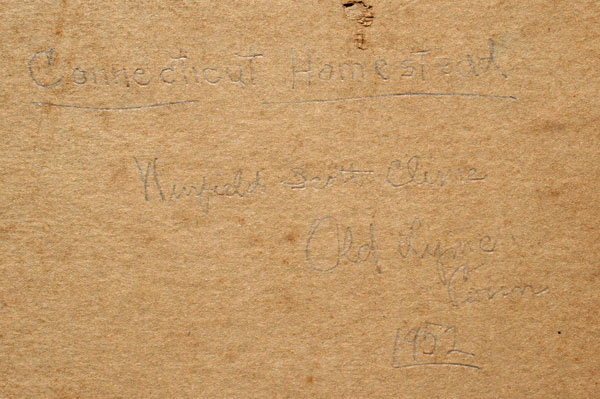 Connecticut Homestead
Winfield Scott Clime
Old Lyme
Conn
1952